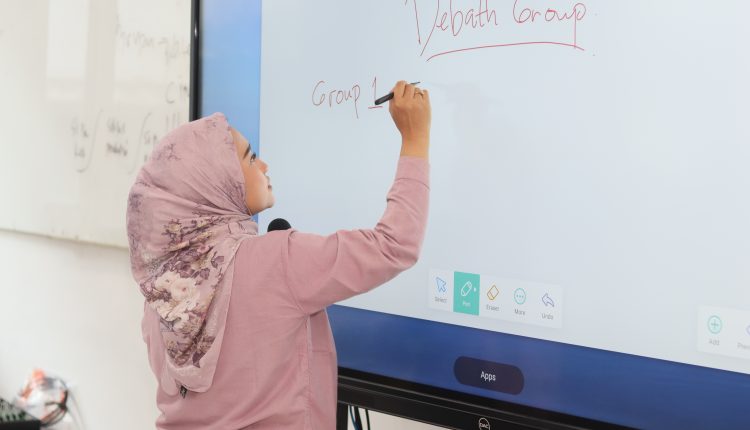 Debath Group
Group 1
Select
Pen
Eraser
More
Undo
Add
Apps